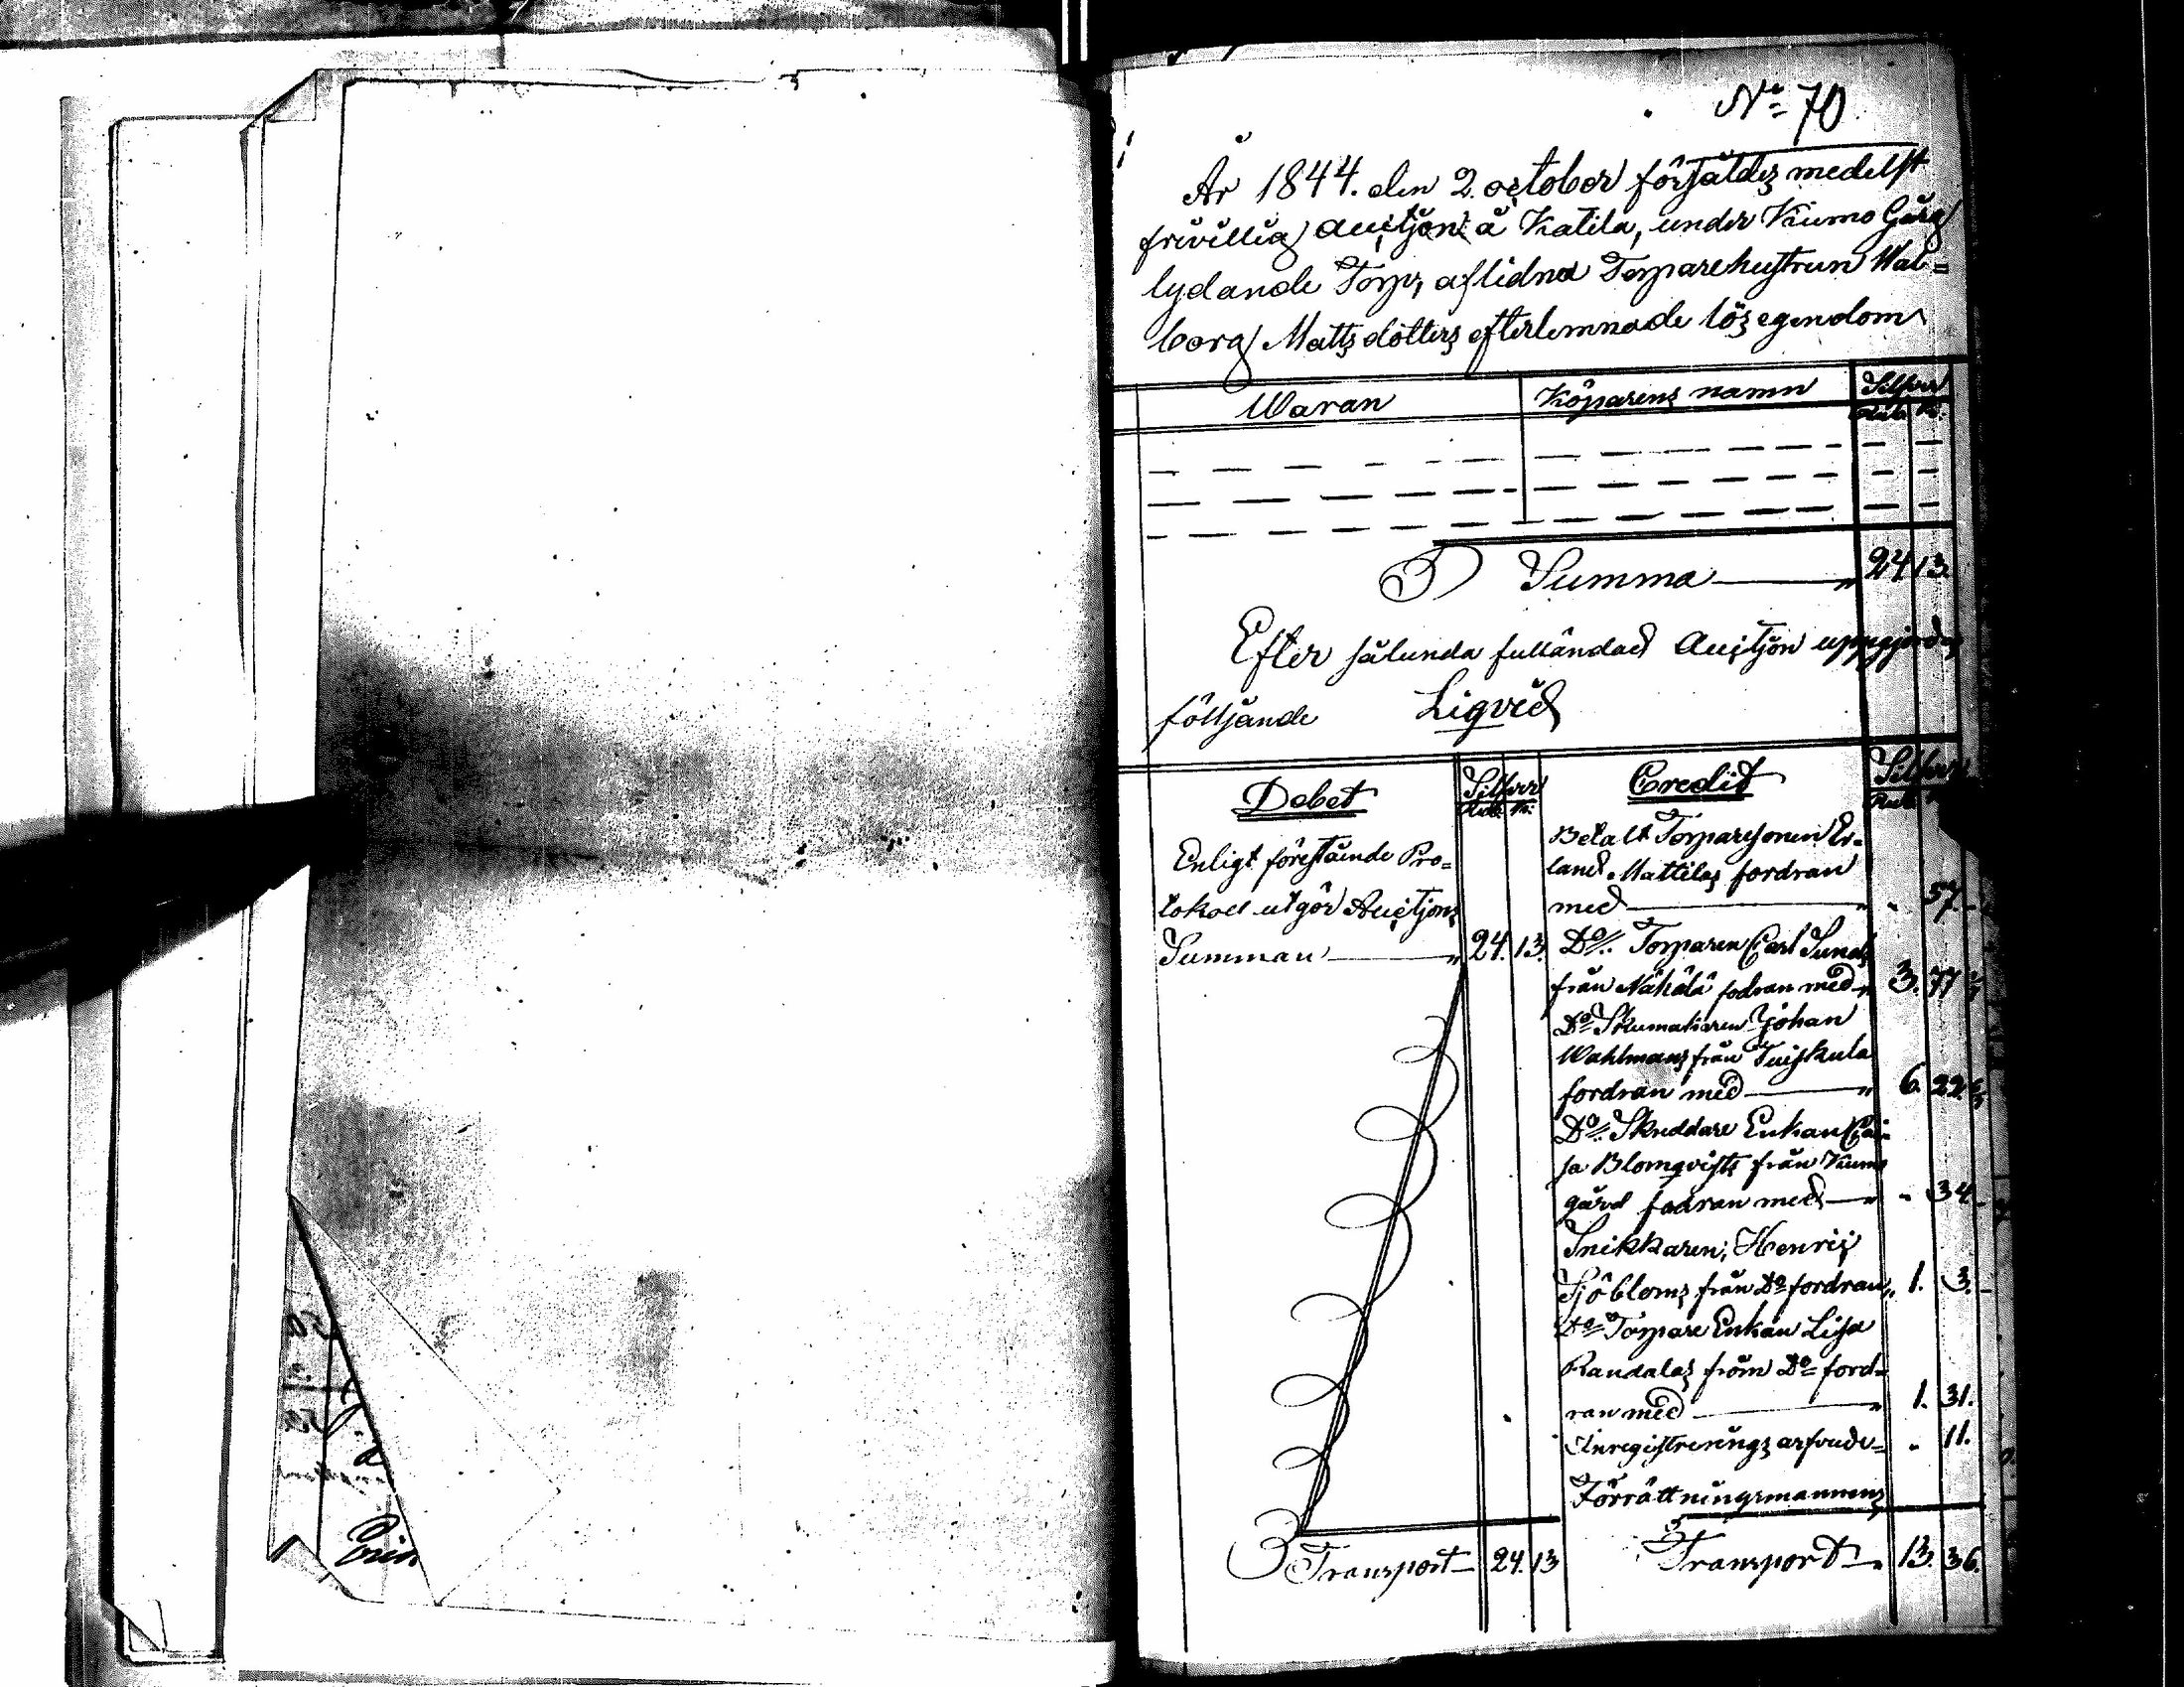 No 70
År 1844. den 2. october försåldes medelst
frivillig auctjon å Katila, under Kiumo Gård
lydande Torp, aflidna Torparehustrun Wal=
borg Mattsdotters efterlemnade lös egendom
Waran Köparens namn Silfver
Rub. K.
Summa 24 13.
Efter sålunda fulländad Auctjon uppgjordes
följande Liqvid
Debet Silfver
Rub. K.
Enligt förestående Pro=
tokoll utgör Auctjons
Summan 24. 13.
Transport 24. 13
Credit Silfver
Rub.
Betalt Torparesonen Er=
land Mattilas fordran
med " 57.
Do Torparen Carl Sunds
från Nähälä fodran med " 3. 77
Do Johan
Wahlmans från Tuiskula
fordran med " 6. 22.
Do Skreddare Enkan Cai
sa Blomqvists från Kiumo
gård fodran med " 34.
Snikkaren, Henric
Sjöbloms från Do fordran " 1. 3.
Do Torpare Enkan Lisa
Randalas från Do ford=
ran med " 1. 31.
Inregistrerings arfvode= " 11.
Förrättningsmannens
Transport " 13. 36.